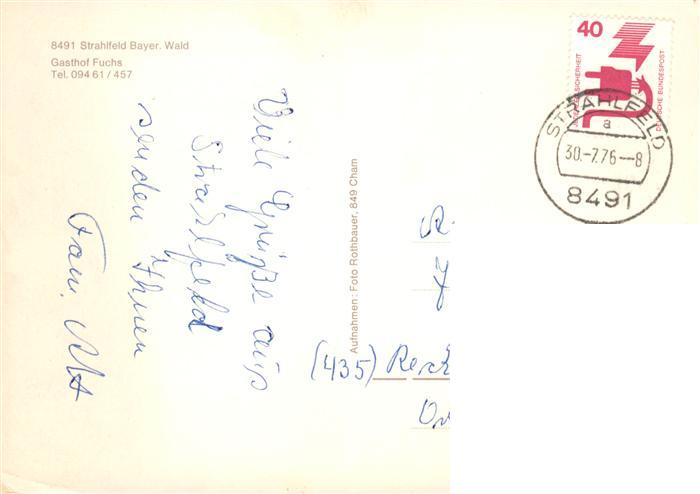 8491 Strahlfeld Bayer. Wald
Gasthof Fuchs
Tel. 09461/457
Viele Grüße aus
Strahlfeld
senden Ihnen
Fam. Alt
Aufnahmen: Foto Rothbauer, 849 Cham
40
DEUTSCHE BUNDESPOST
STRAHLFELD
a
30.-7.76--8
8491
(435)